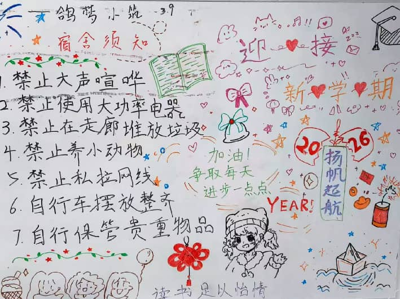 鸽鹗小筑 3.9
宿舍须知
1.禁止大声喧哗
2.禁止使用大功率电器
3.禁止在走廊堆放垃圾
4.禁止养小动物
5.禁止私拉网线
6.自行车摆放整齐
7.自行保管贵重物品
迎接
新学期
2026
扬帆起航
加油!
争取每天
进步一点点
YEAR!
读书足以怡情